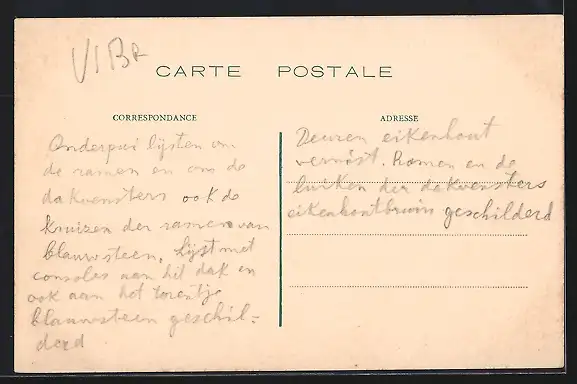 VIBR
CARTE POSTALE
CORRESPONDANCE
Onderpui lijsten om
de ramen en om de
dakvensters ook de
kruizen der ramen van
blauwsteen. Lijst met
consoles aan het dak en
ook aan het torentje
blauwsteen geschil-
derd
ADRESSE
Deuren eikenhout
vernist. Ramen en de
luiken der dakvensters
eikenhoutbruin geschilderd